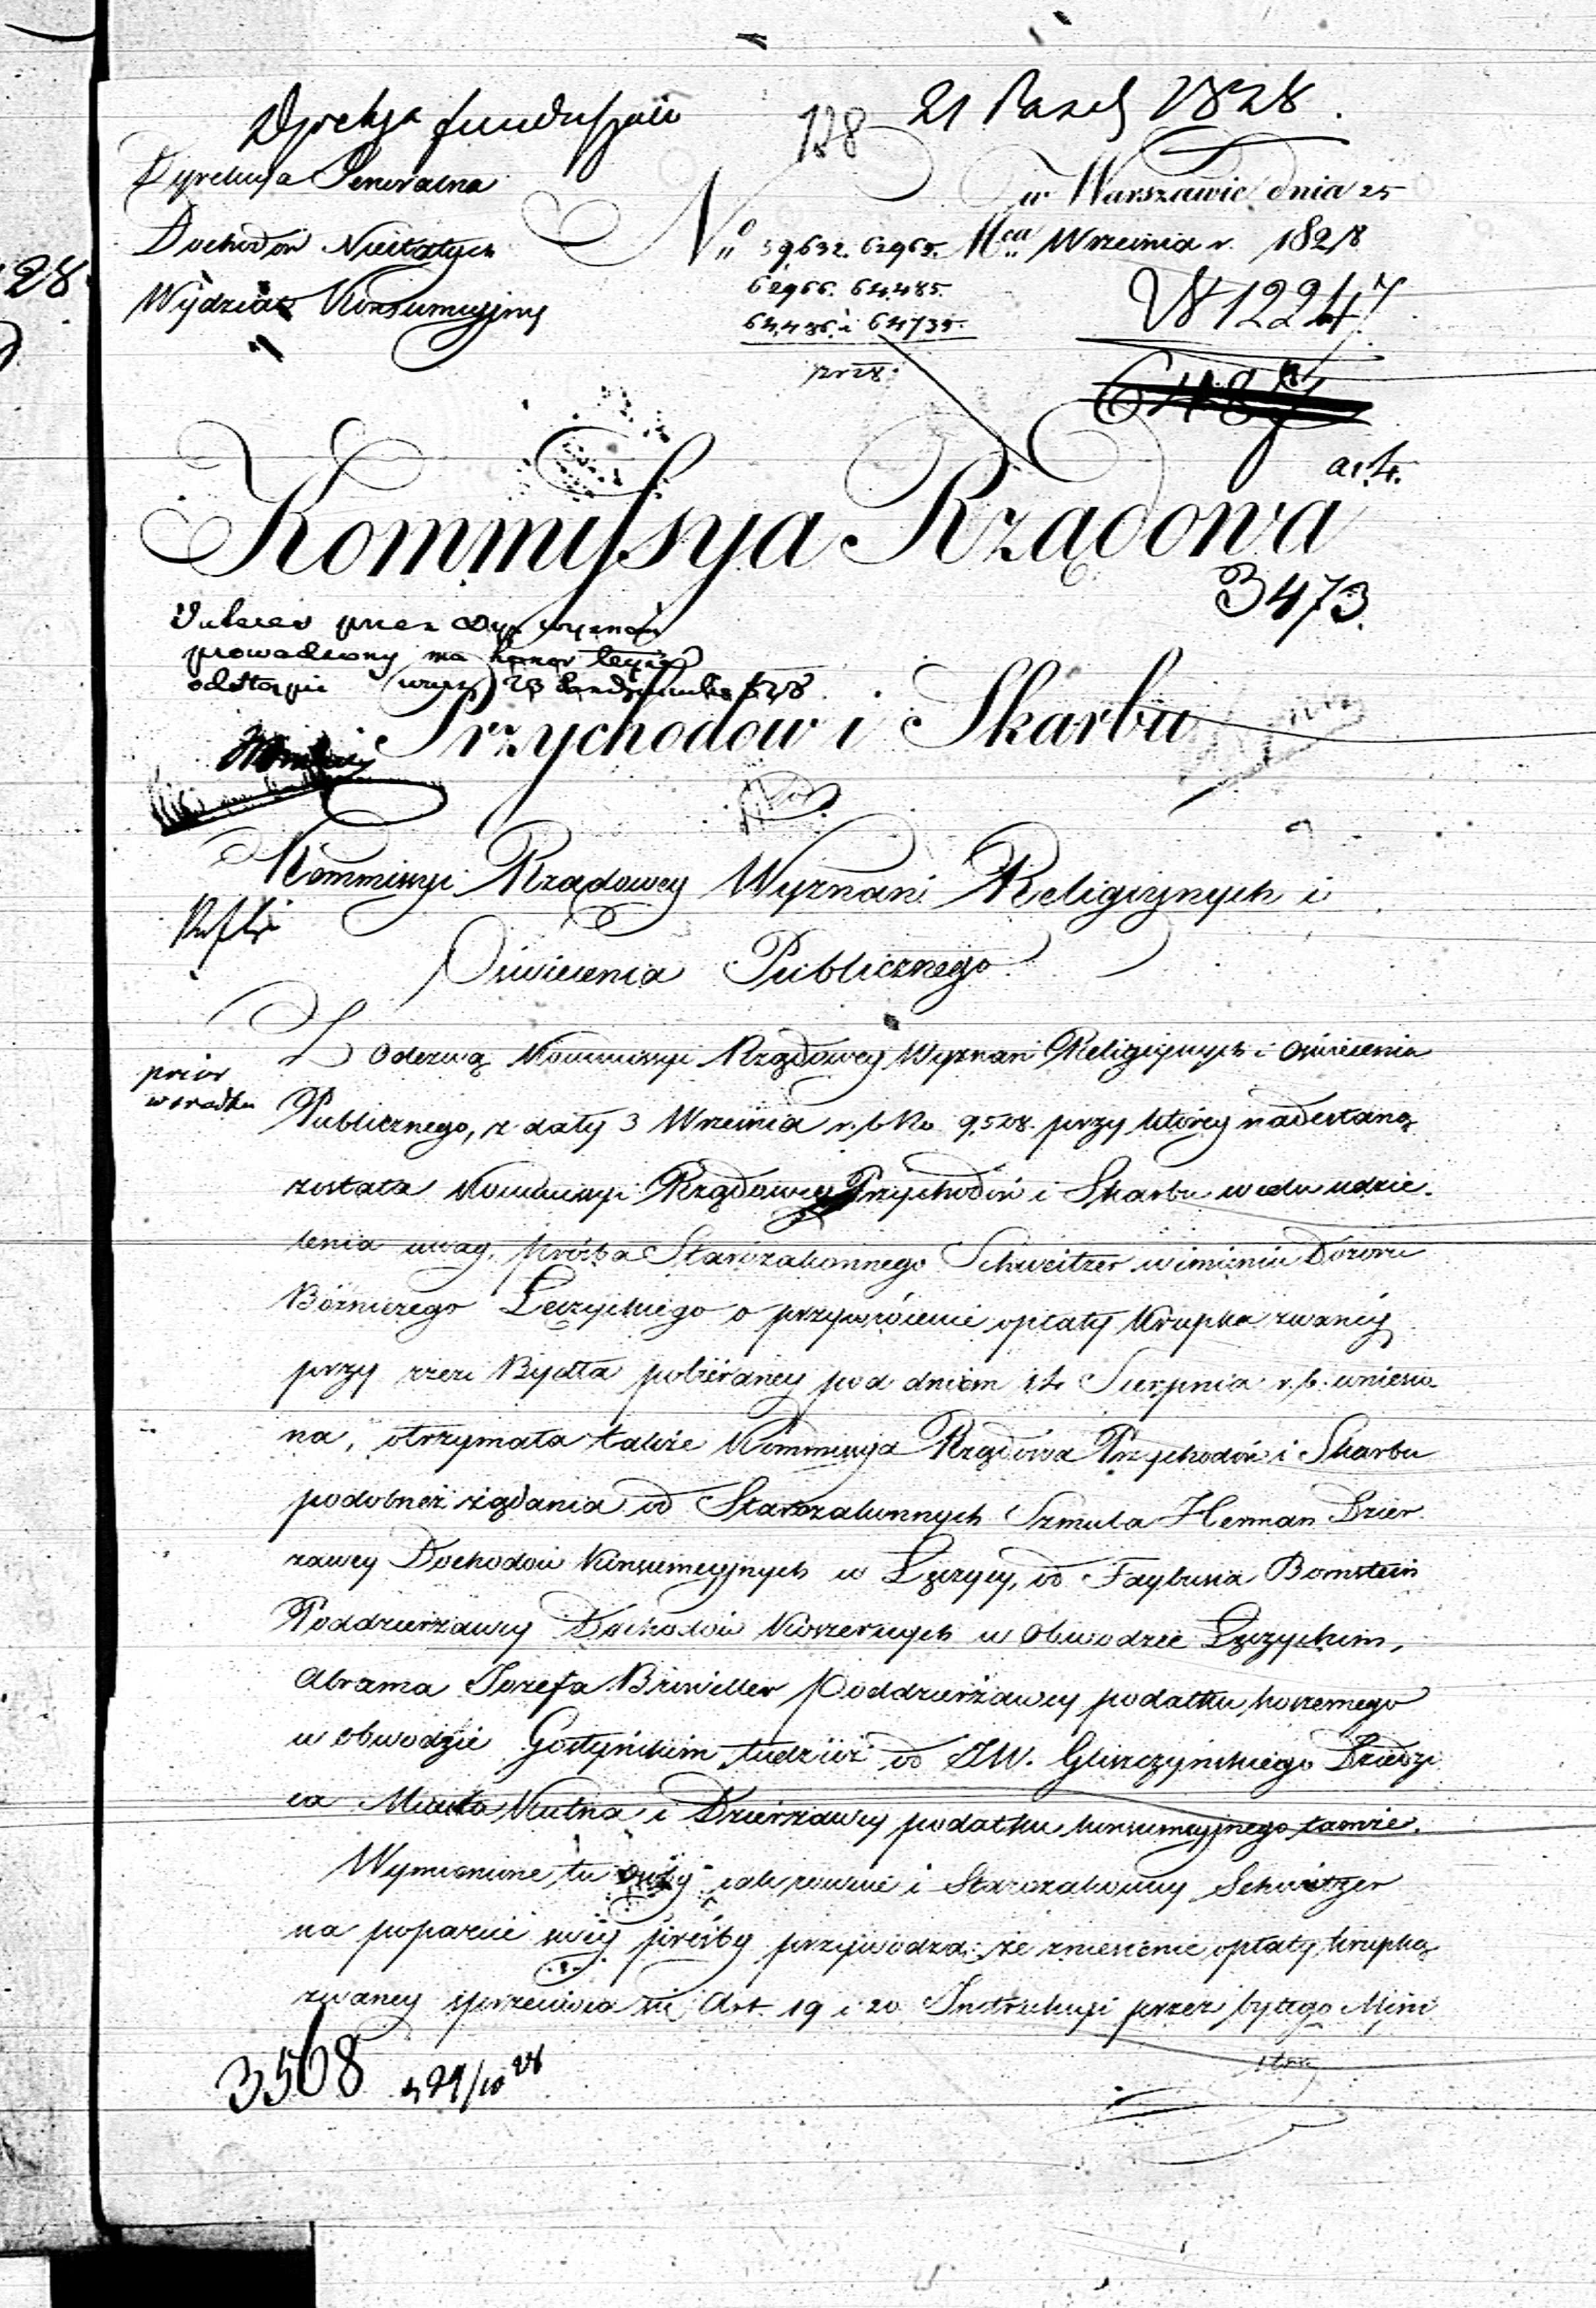 Dyrekcja funduszów
128 21 Paźd 1828.
Dyrekcya Generalna
w Warszawie dnia 25
Dochodów Niestałych
No 59,632. 62965. Mca Września r. 1828
62966. 64,485.
Wydział Konsumcyjny
64,486. i 64735.
12247
pr 28.
art.
Kommyssya Rządowa
3473.
przez Dyr wyznań
prowadzony ma honor
odstąpić 23 Października 1828.
Przychodów i Skarbu
Kommissyi Rządowey Wyznań Religiynych i
Oświecenia Publicznego.
Z odezwą Kommissyi Rządowey Wyznań Religiynych i Oświecenia
Publicznego, z daty 3 Września r. b. No 9,528. przy którey nadesłaną
została Kommissyi Rządowey Przychodów i Skarbu w celu udzie-
lenia uwag, prośba Starozakonnego Schweitzer w imieniu Dozoru
Bóżniczego Łęczyckiego o przywrócenie opłaty Krupka zwaney
przy rzezi Bydła pobieraney pod dniem 14 Sierpnia r. b. wniesio
na, otrzymała także Kommissya Rządowa Przychodów i Skarbu
podobneż żądania od Starozakonnych Szmula Herman Dzier-
żawcy Dochodów Konsumcyjnych w Łęczycy, od Faybusia Bornstein
Poddzierżawcy Dochodów Koszernych w Obwodzie Łęczyckim,
Abrama Jozefa Poddzierżawcy podatku koszernego
w obwodzie Gostyńskim tudzież od JW. Gliszczyńskiego Dziedzi
ca Miasta Kutna i Dzierżawcy podatku konsumcyjnego tamże.
Wymienione tu osoby iak równie i Starozakonny Schweitzer
na poparcie swey prośby przywodzą: że zniesienie opłaty krupką
zwaney sprzeciwia się Art. 19 i 20 Instrukcyi przez byłego Mini
stra
3508